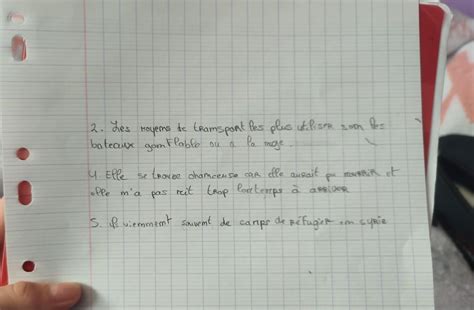 2. Les moyens de transport les plus utiliser son les
bateaux gonflable ou a la nage.
4. Elle se trouve chanceuse car elle aurait pu mourir et
elle n'a pas mit trop longtemps à arriver
5. Il viennment souvent de camps de réfugier en syrie